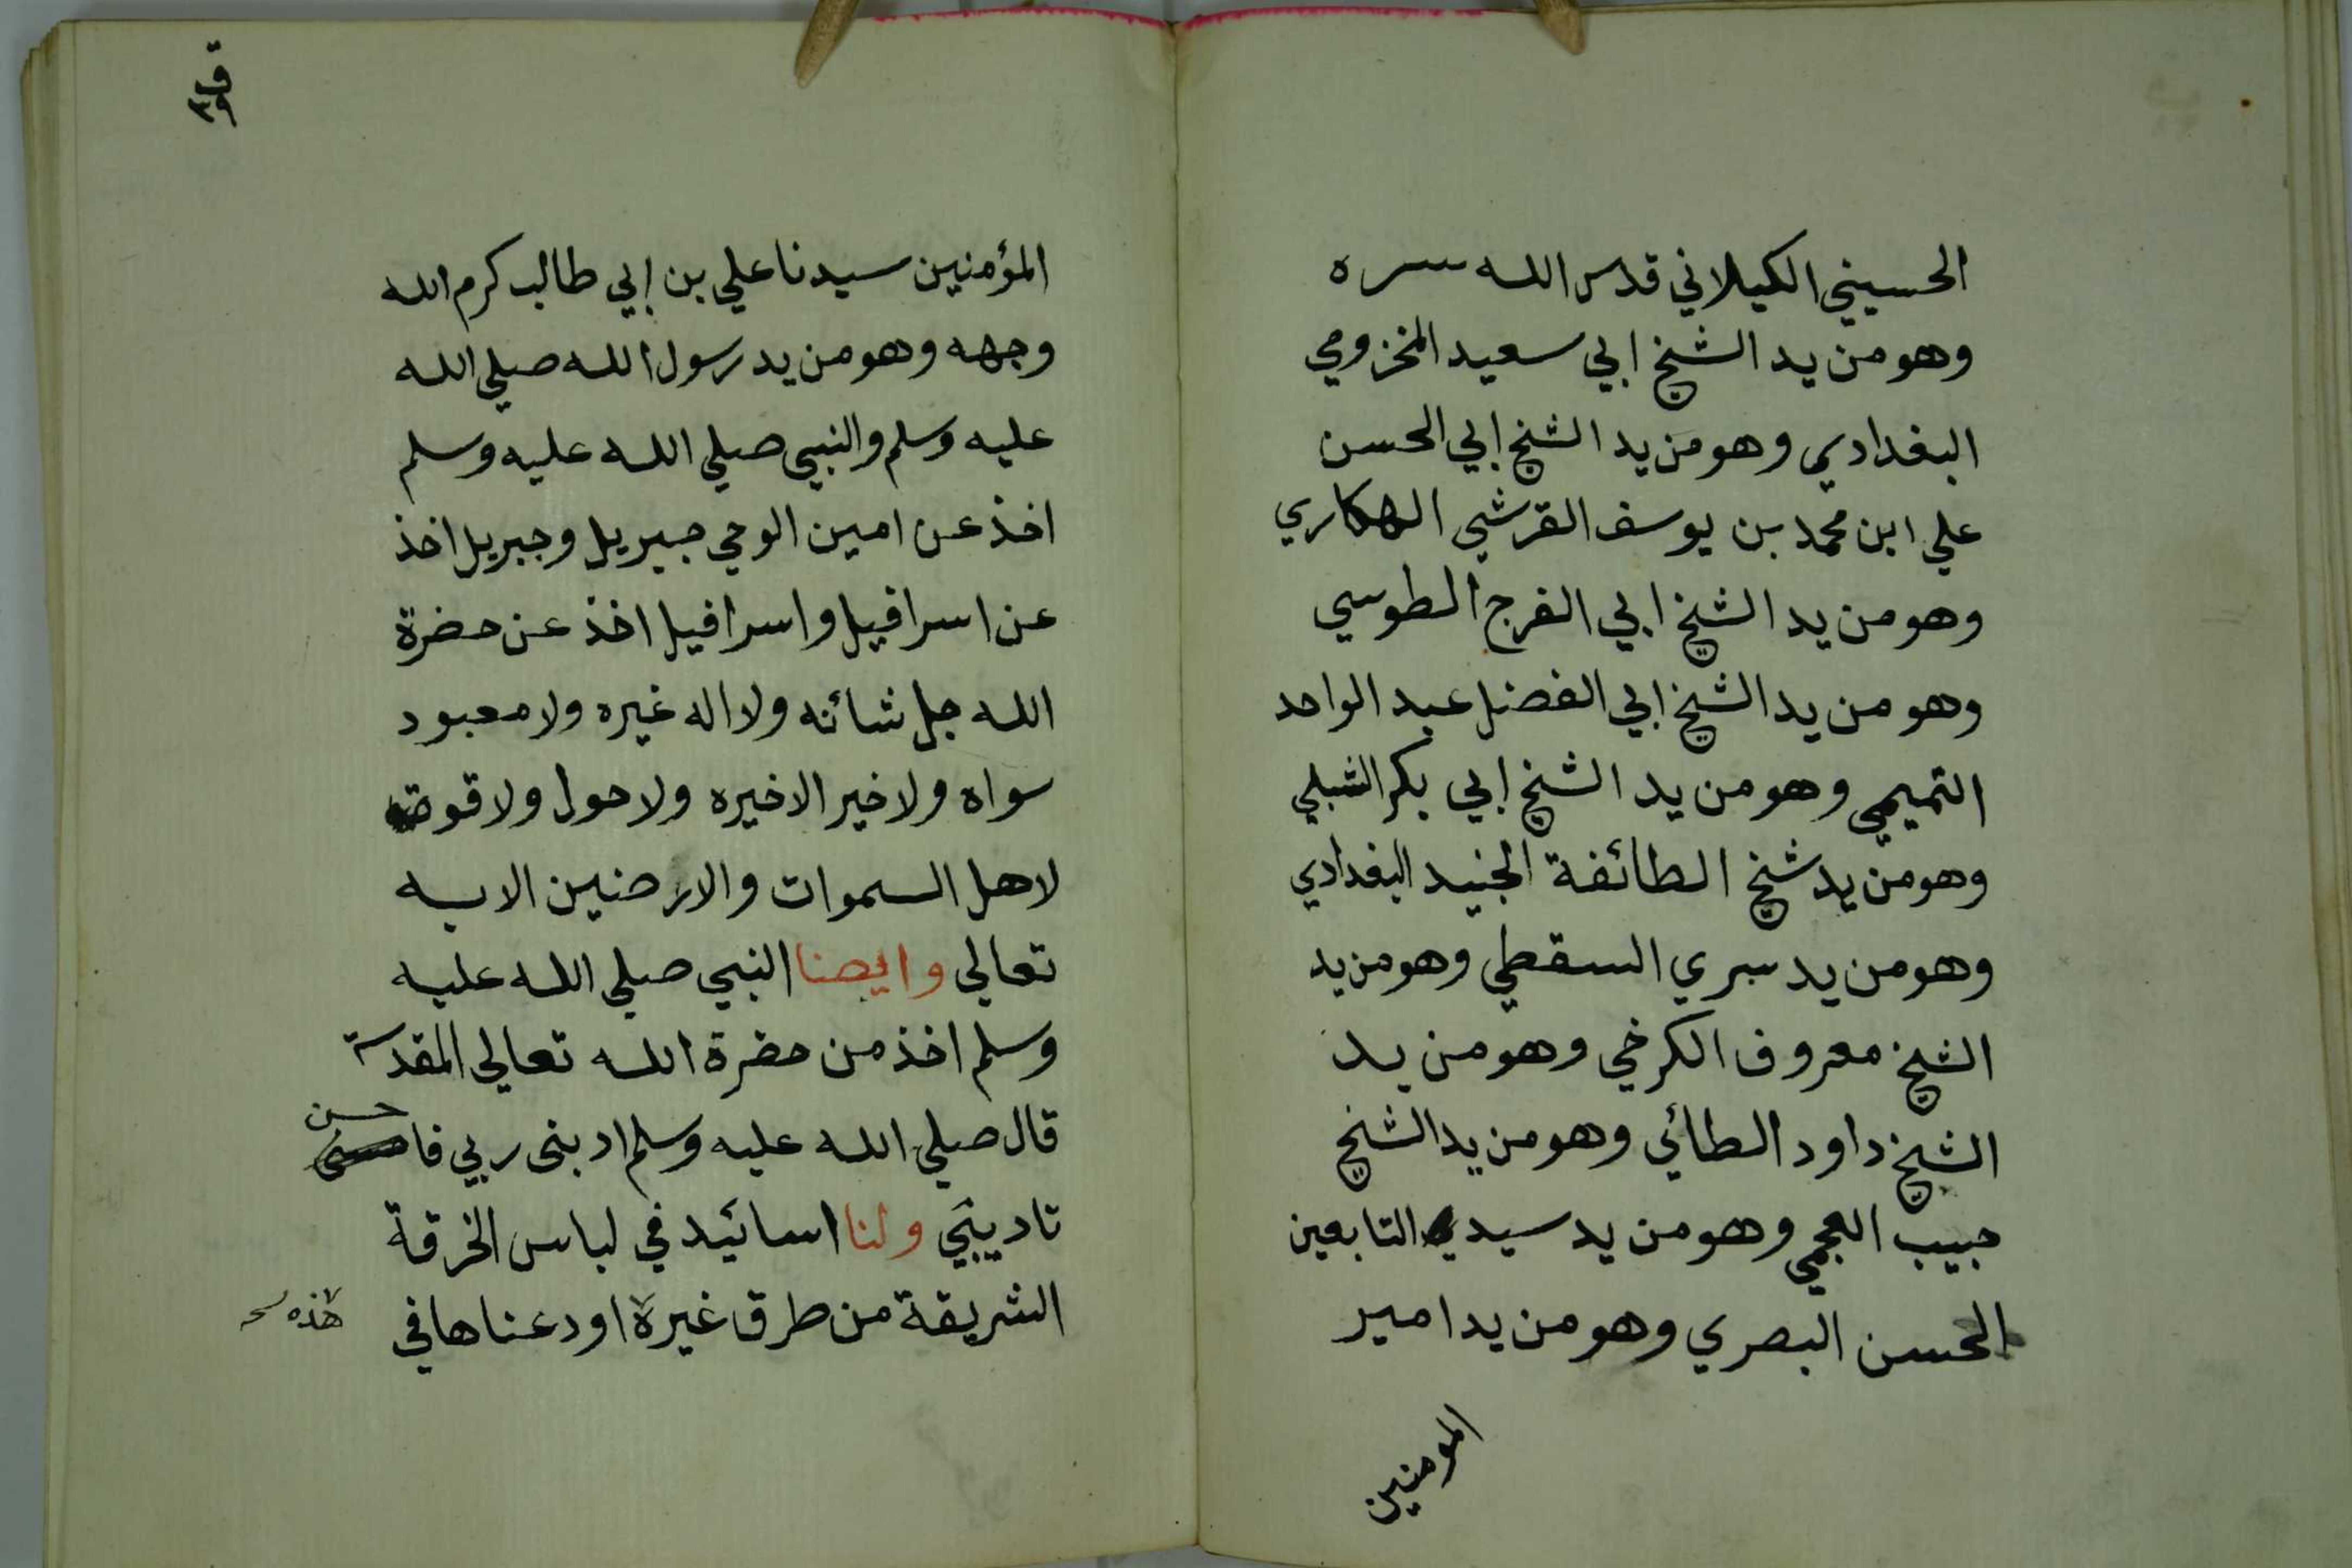 الحسيني الكيلاني قدس الله سره
وهو من يد الشيخ ابي سعيد المخزومي
البغدادي وهو من يد الشيخ ابي الحسن
علي ابن محمد بن يوسف القرشي الهكاري
وهو من يد الشيخ ابي الفرج الطوسي
وهو من يد الشيخ ابي الفضل عبد الواحد
التميمي وهو من يد الشيخ ابي بكر الشبلي
وهو من يد شيخ الطائفة الجنيد البغدادي
وهو من يد سري السقطي وهو من يد
الشيخ معروف الكرخي وهو من يد
الشيخ داود الطائي وهو من يد الشيخ
حبيب العجمي وهو من يد سيد التابعين
الحسن البصري وهو من يد امير
المومنين
ق
٣٩
المؤمنين سيدنا علي بن ابي طالب كرم الله
وجهه وهو من يد رسول الله صلي الله
عليه وسلم والنبي صلي الله عليه وسلم
اخذ عن امين الوحي جبريل وجبريل اخذ
عن اسرافيل واسرافيل اخذ عن حضرة
الله جل شائنه ولا اله غيره ولا معبود
سواه ولا خير الا خيره ولا حول ولا قوة
لاهل السموات والارضين الا به
تعالي وايضا النبي صلي الله عليه
وسلم اخذ من حضرة الله تعالي المقدسة
قال صلي الله عليه وسلم ادبنى ربي فاحسن
تاديبي ولنا اسائيد في لباس الخرقة
الشريقة من طرق غيرة اودعناها في
هذه